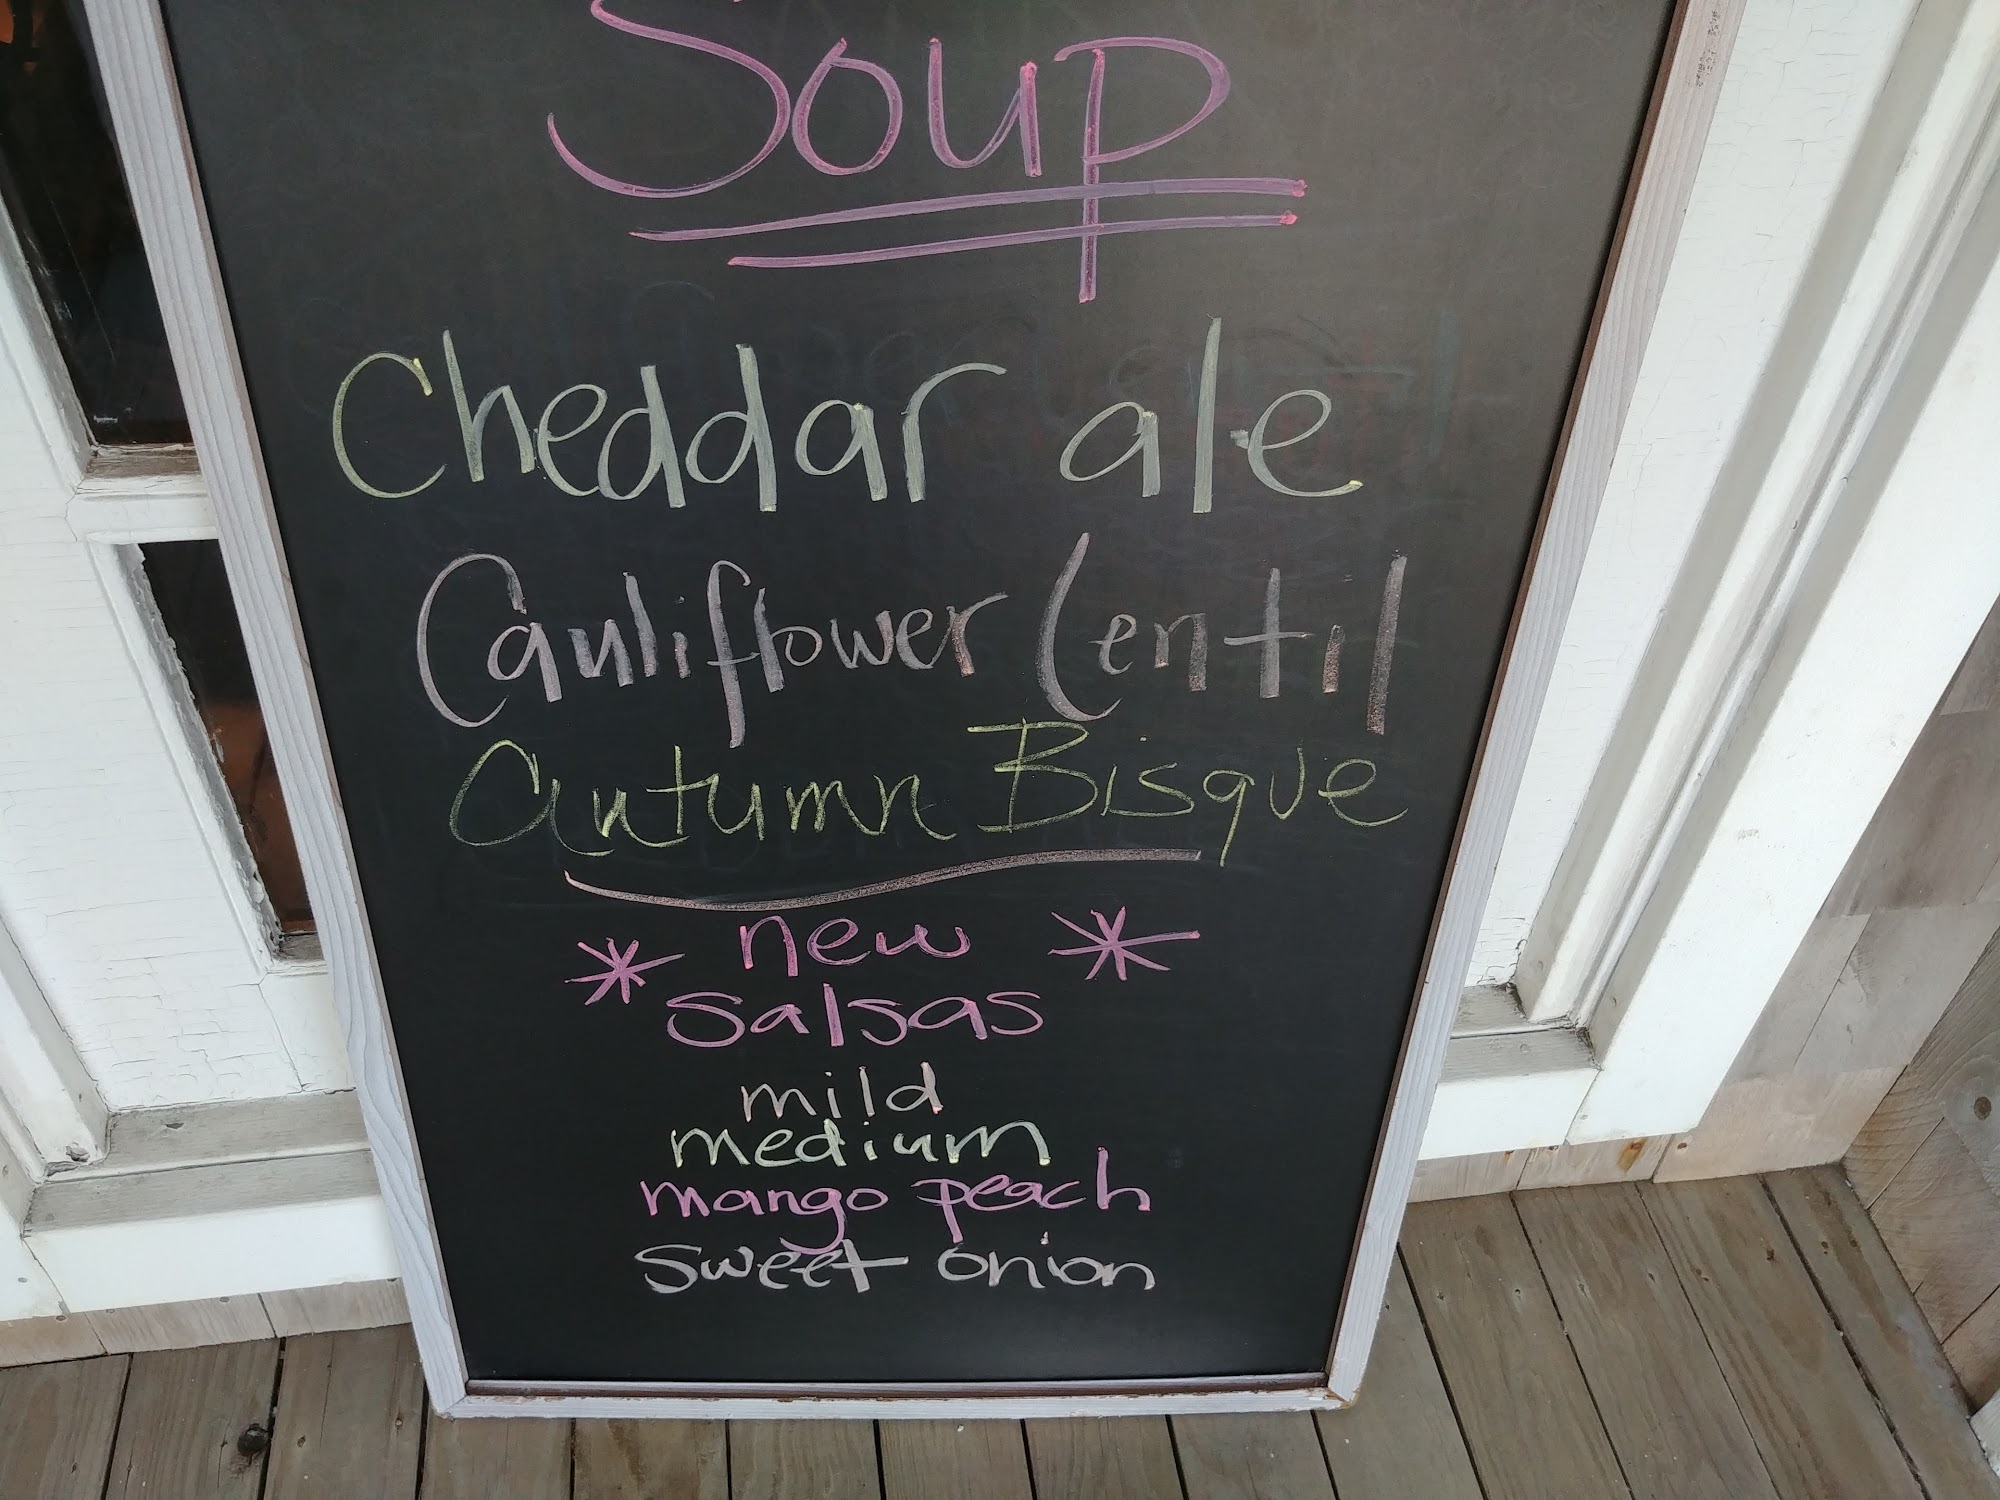 Soup
Cheddar ale
Cauliflower Lentil
Autumn Bisque
* new *
salsas
mild
medium
mango peach
sweet onion